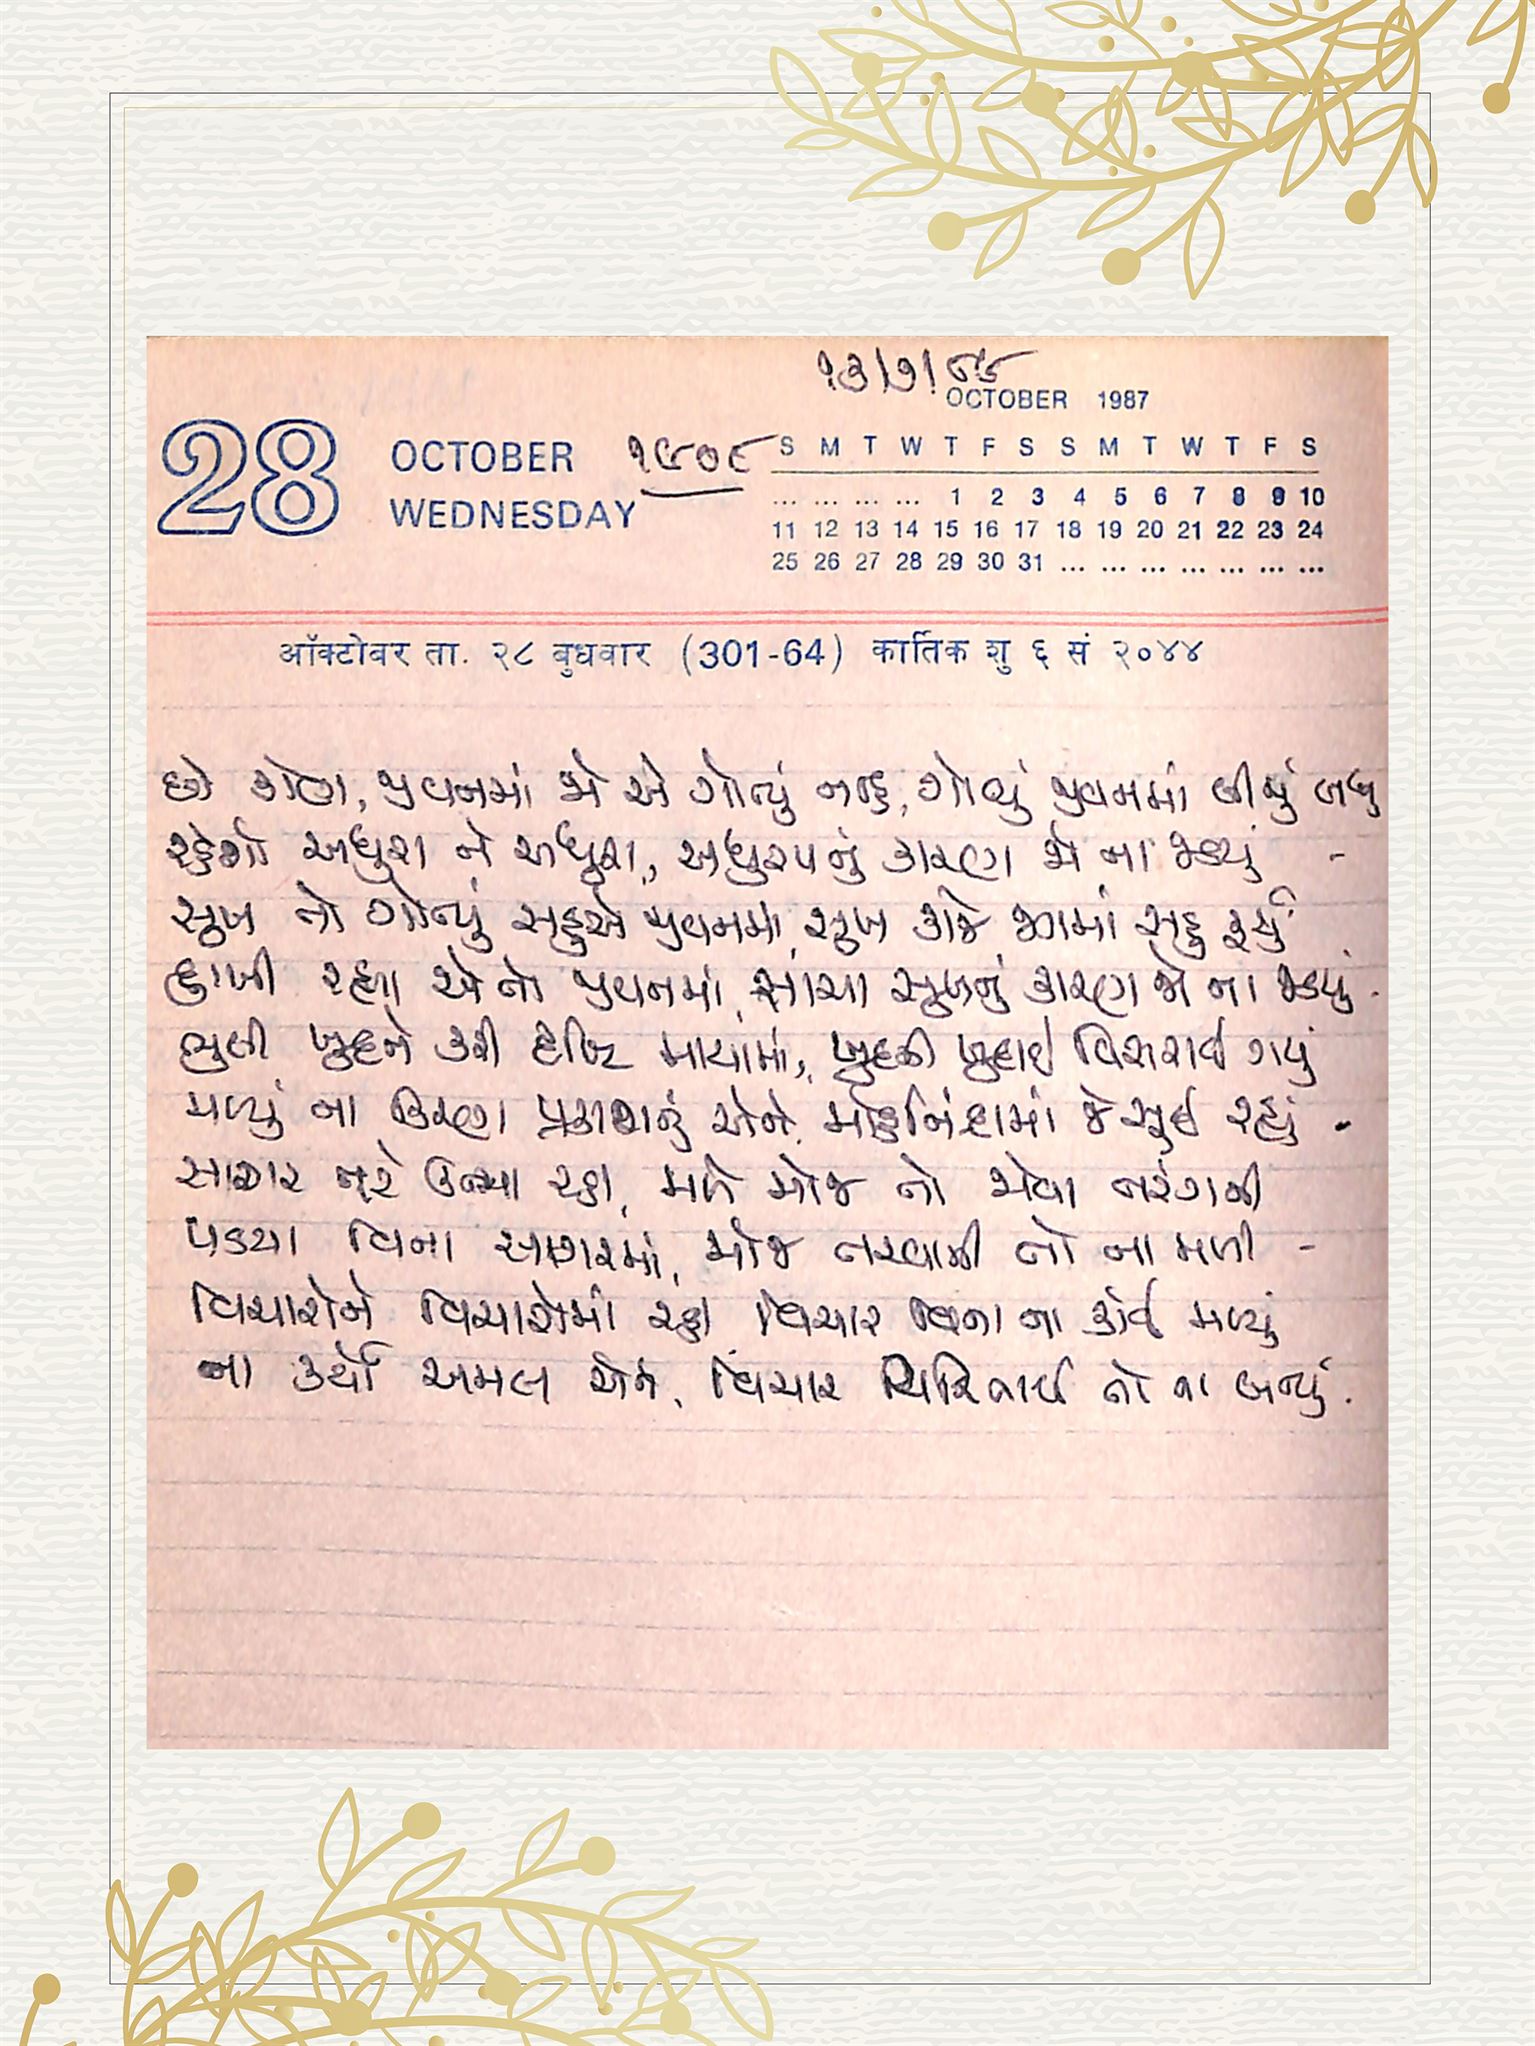 ૧૩/૭/૯૬
OCTOBER 1987
28 OCTOBER ૧૬૦૯ S M T W T F S S M T W T F S
WEDNESDAY ... ... ... ... 1 2 3 4 5 6 7 8 9 10
11 12 13 14 15 16 17 18 19 20 21 22 23 24
25 26 27 28 29 30 31 ... ... ... ... ... ... ...
ऑक्टोबर ता. २८ बुधवार (301-64) कार्तिक शु ६ सं २०४४
છો કોણ, જીવનમાં જો એ ગોત્યું નહિ, ગોત્યું જીવનમાં બીજું બધું
રહેશો અધુરા ને અધુરા, અધુરપનું કારણ જો ના જડયું -
સુખ તો ગોત્યું સહુએ જીવનમાં, સુખ કાજે જગમાં સહુ ફર્યું
દુઃખી રહ્યા એ તો જીવનમાં, સાચા સુખનું કારણ જો ના જડયું -
ભુલી ખુદને કરી દૃષ્ટિ માયામાં, ખુદની ખુદાઈ વિસરાઈ ગયું
મળ્યું ના કિરણ પ્રકાશનું એને, મોહનિંદ્રામાં જે સુઈ રહ્યું -
સાગર તટે ઉભ્યા રહી, મળે મોજ તો જોવા તરંગની
પડયા વિના સાગરમાં, મોજ તરવાની તો ના મળી -
વિચારોને વિચારોમાં રહી વિચાર વિના ના કોઈ મળ્યું
ના કર્યો અમલ એને, વિચાર તો ના બન્યું.